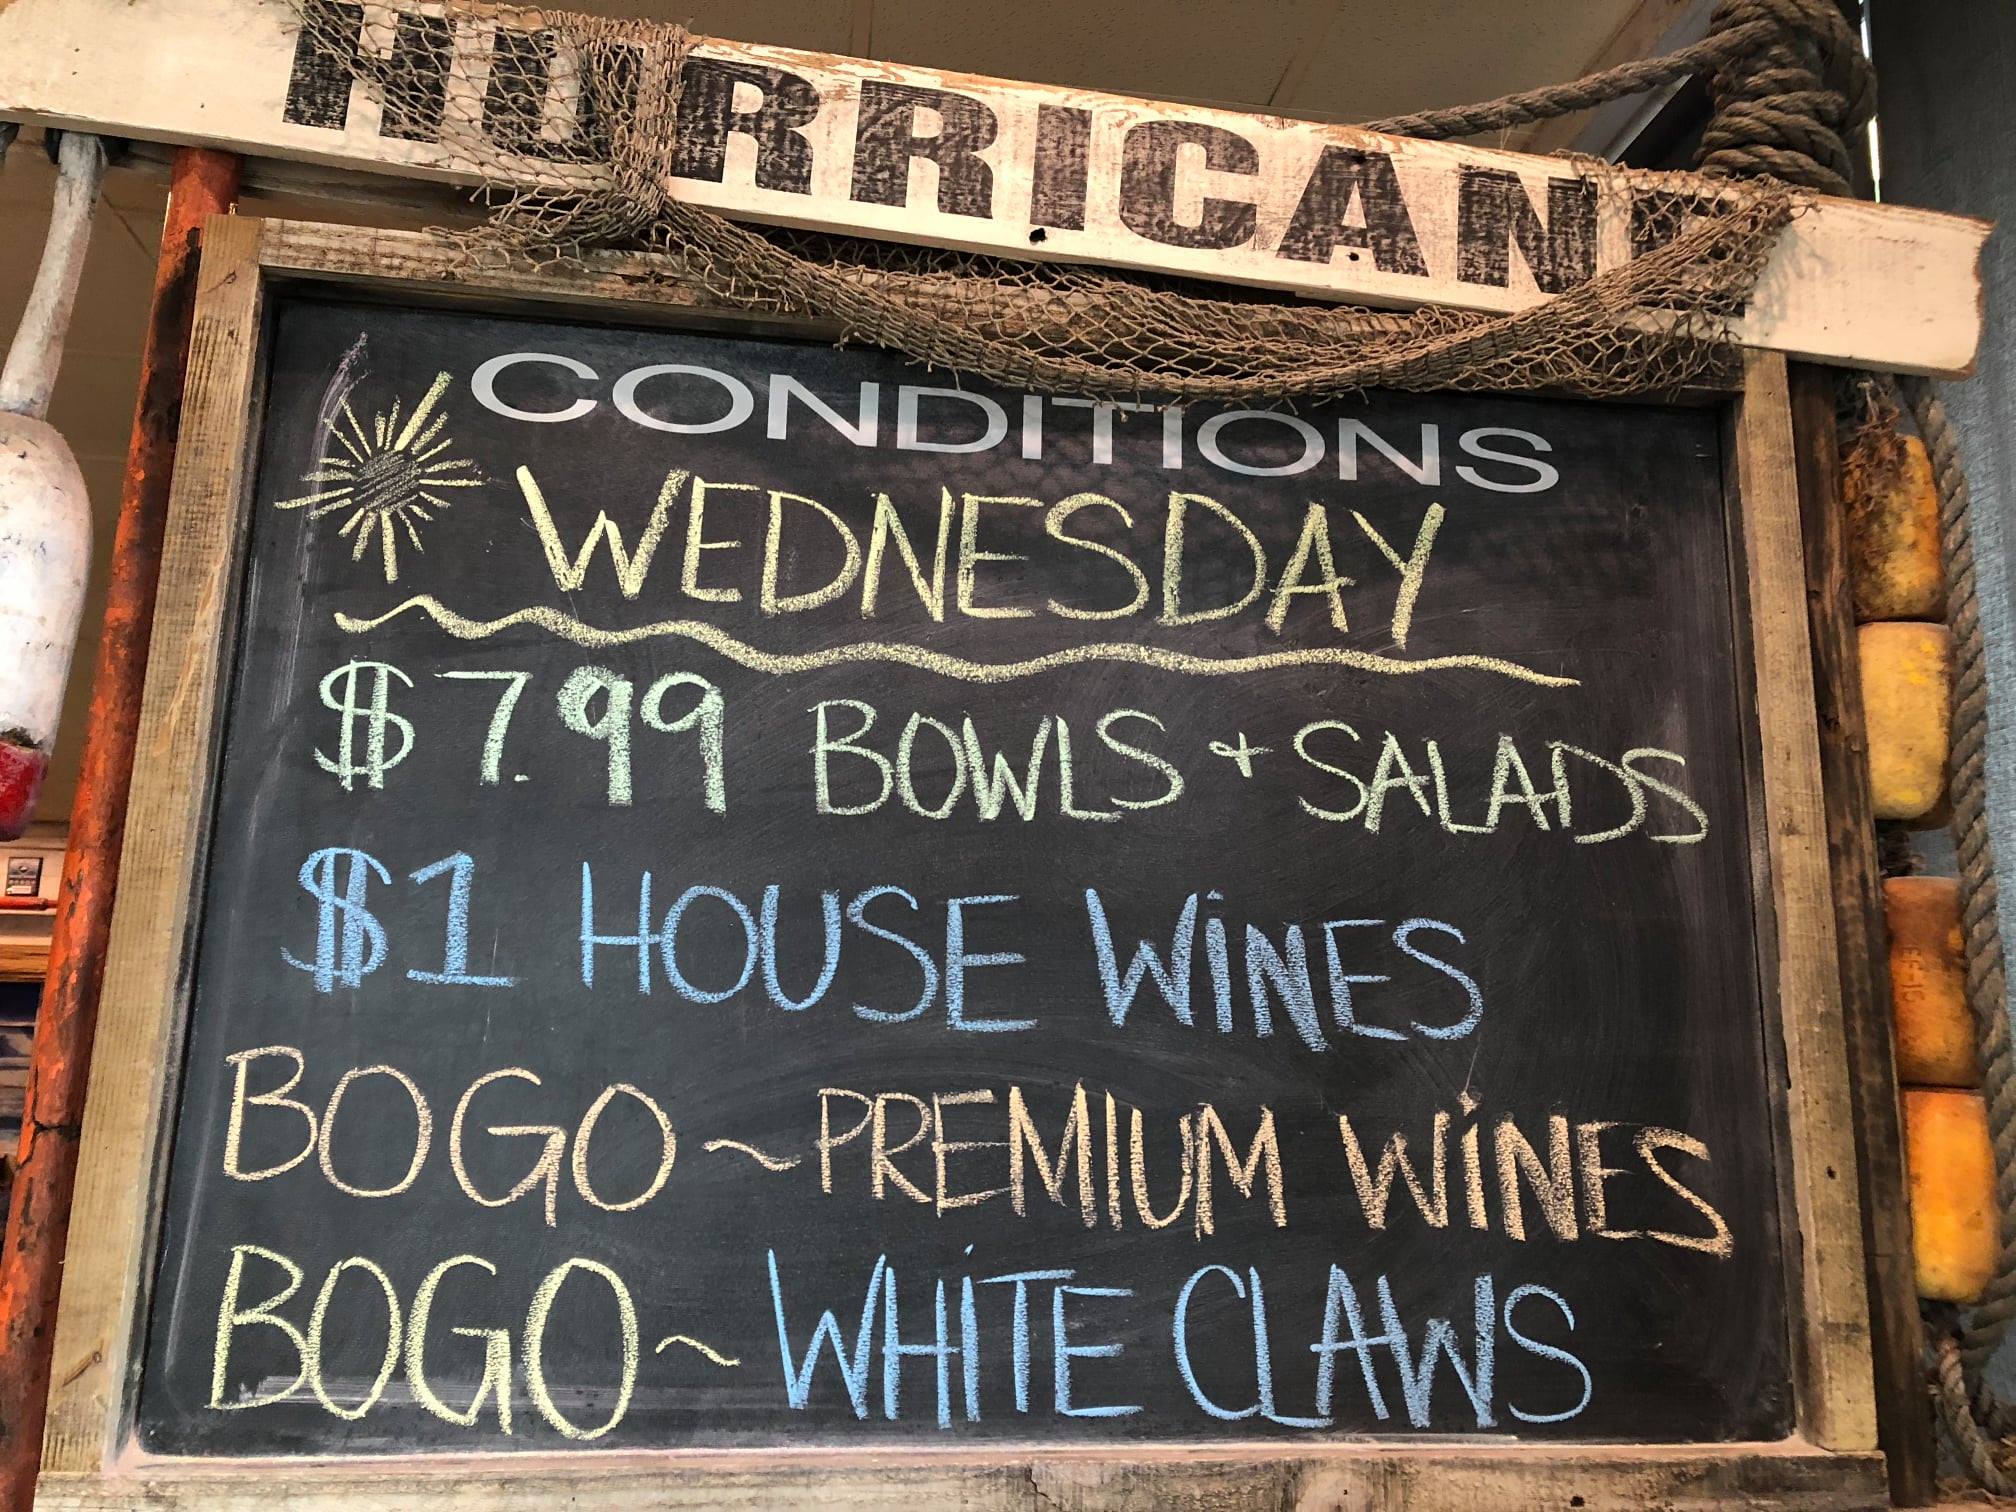 HURRICANE
CONDITIONS
WEDNESDAY
$7.99 BOWLS + SALADS
$1 HOUSE WiNES
BOGO ~ PREMIUM WiNES
BOGO ~ WHiTE CLAWS